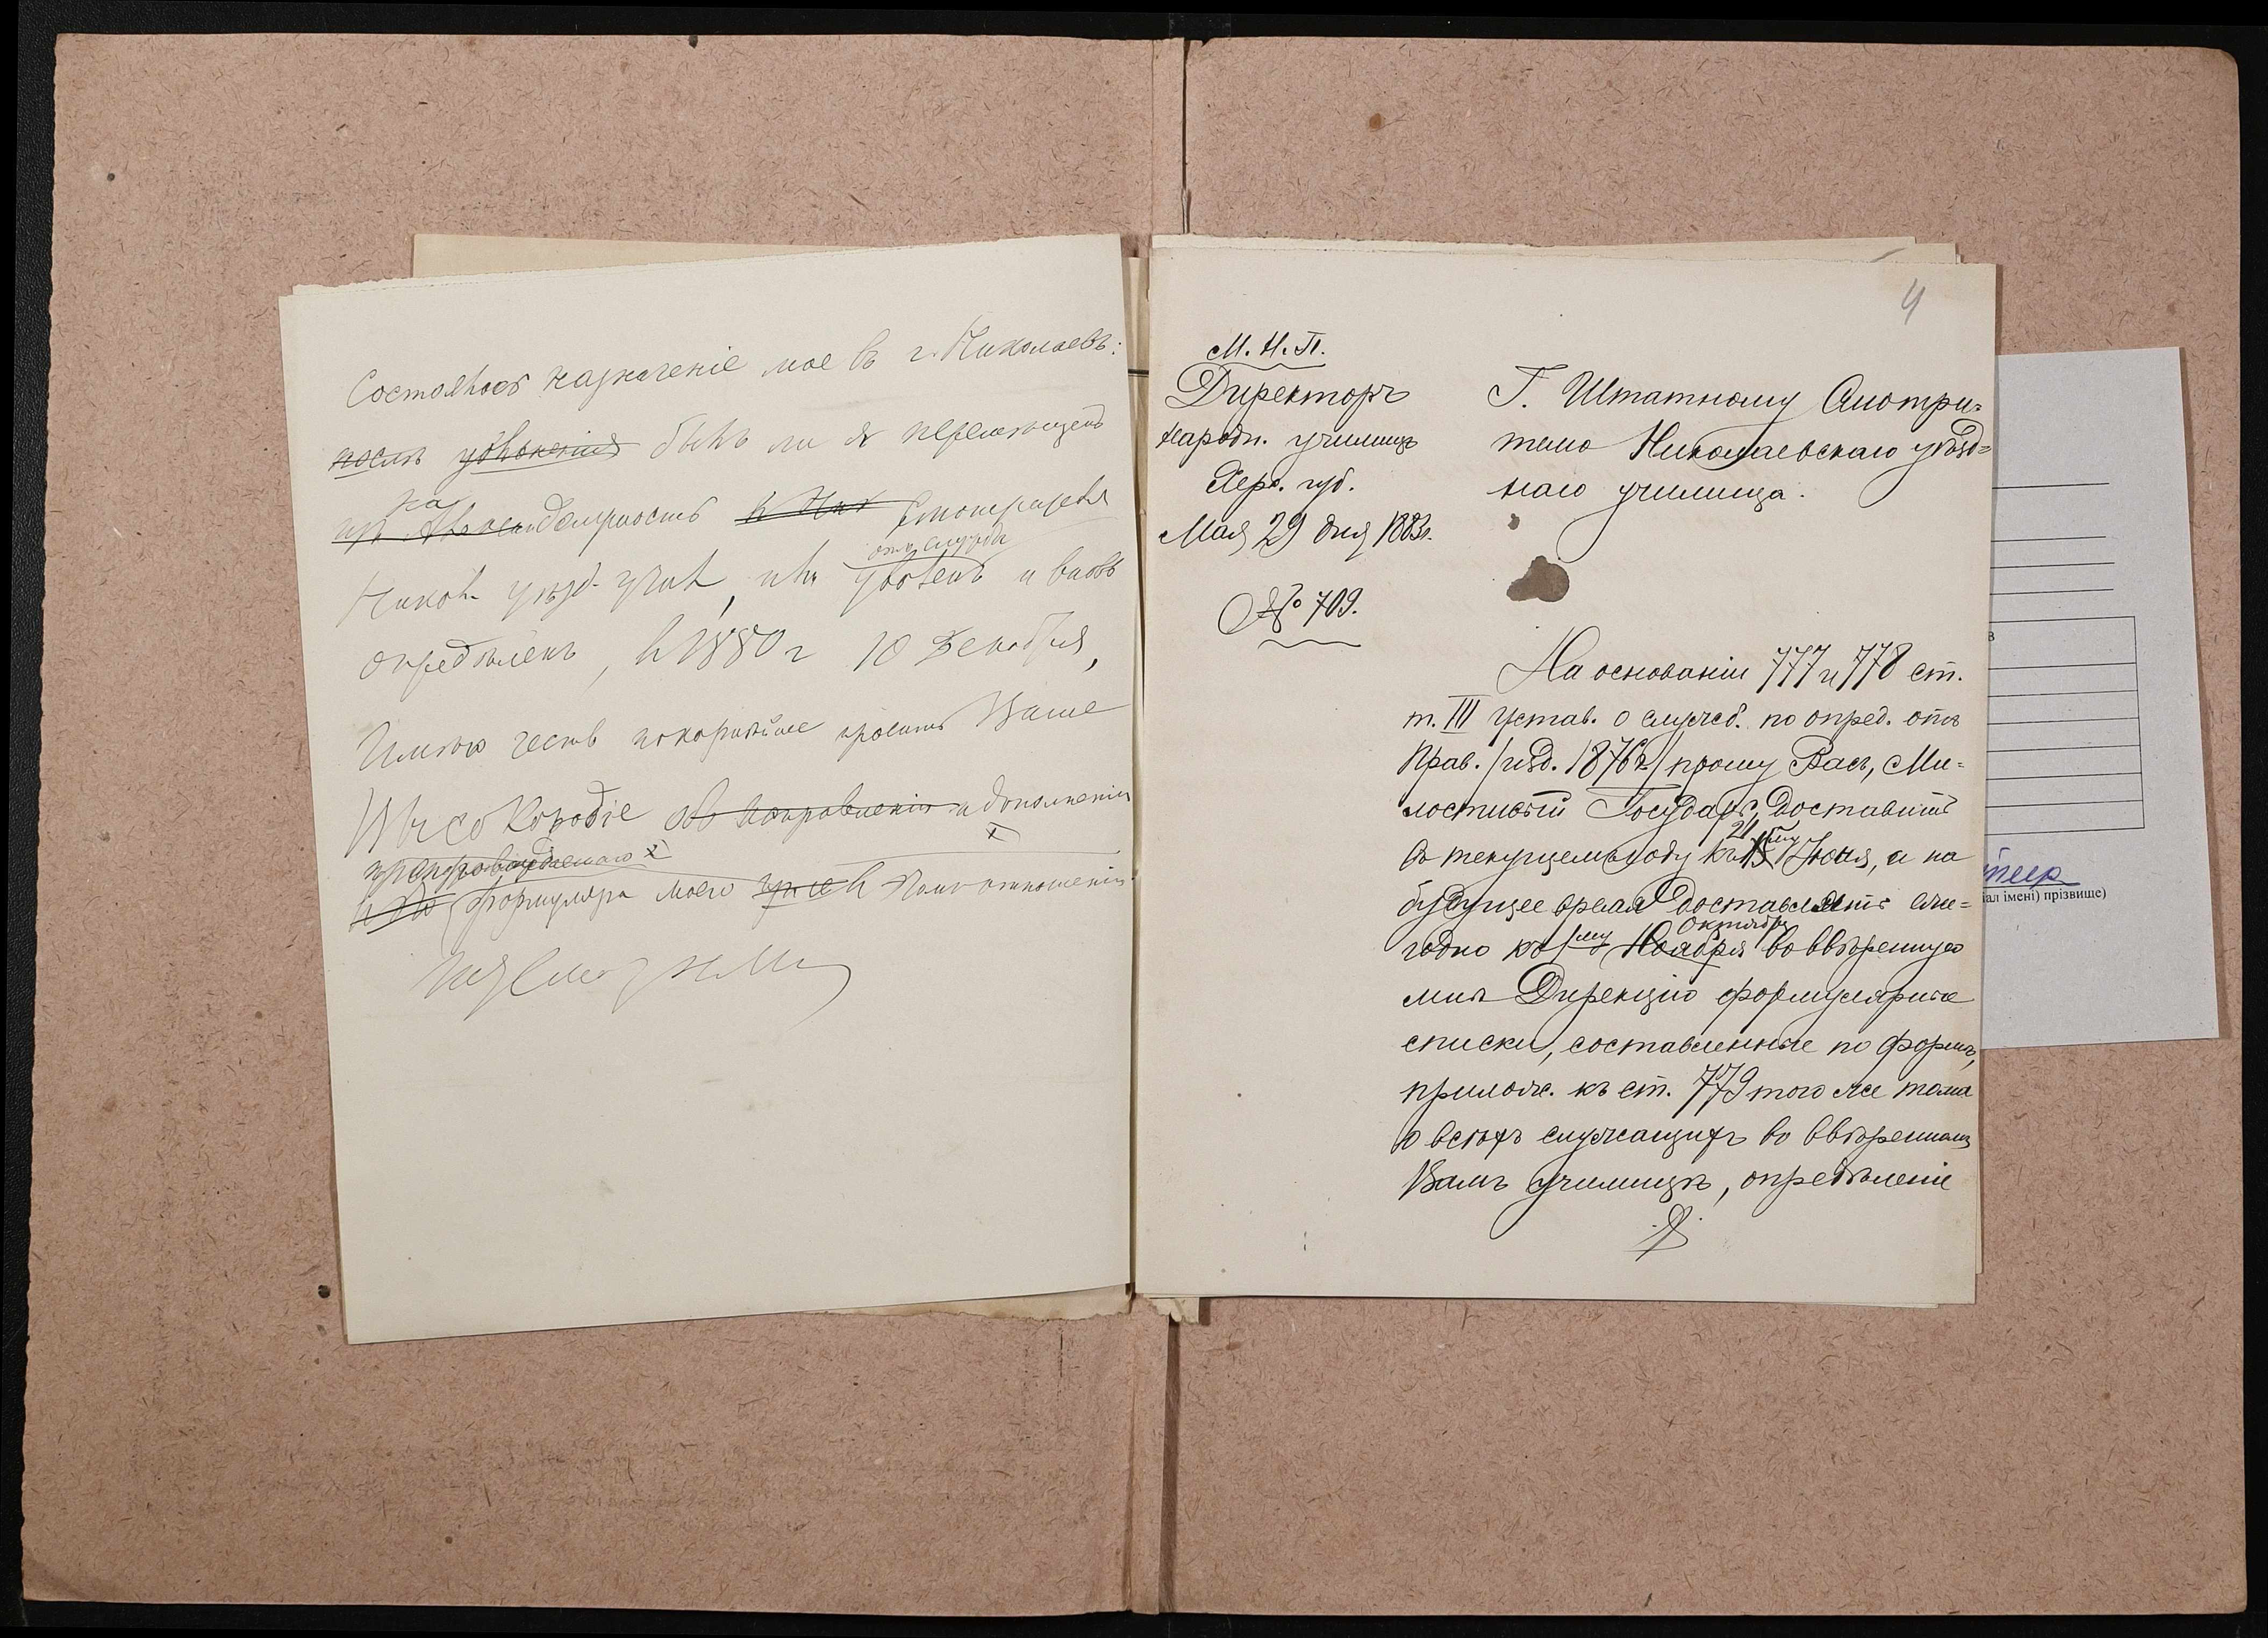 Состоялось назначеніе мое въ г. Николаевъ:
послѣ увольненія былъ ли я перемѣщенъ
на должность Смотрителя
отъ службы
Никол. уѣзд. учил, или уволенъ и вновь
опредѣленъ, въ 1880 г 10 Декабря,
Имѣю честь покорнѣйше просить Ваше
Высокородіе объ исправленіи и дополненіи
препровождаемаго х х
формуляра моего
4
М. Н. П.
Директоръ
народн. училищъ
Херс. губ.
Мая 29 дня 1883 г.
№ 709.
Г. Штатному Смотри-
телю Николаевскаго уѣзд-
наго училища.
На основаніи 777 и 778 ст.
т. III Устав. о служб. по опред. отъ
Прав. /изд. 1876 г./ прошу Васъ, Ми-
лостивый Государь, доставить
въ текущемъ году къ 15 21му Іюня, а на
будущее время доставлять еже-
Октября
годно къ 1му Ноября во ввѣренную
мнѣ Дирекцію формулярные
списки, составленные по формѣ,
прилож. къ ст. 779 того же тома
о всѣхъ служащихъ во ввѣренномъ
Вамъ училищѣ, опредѣленіе
в
іал імені) прізвище)